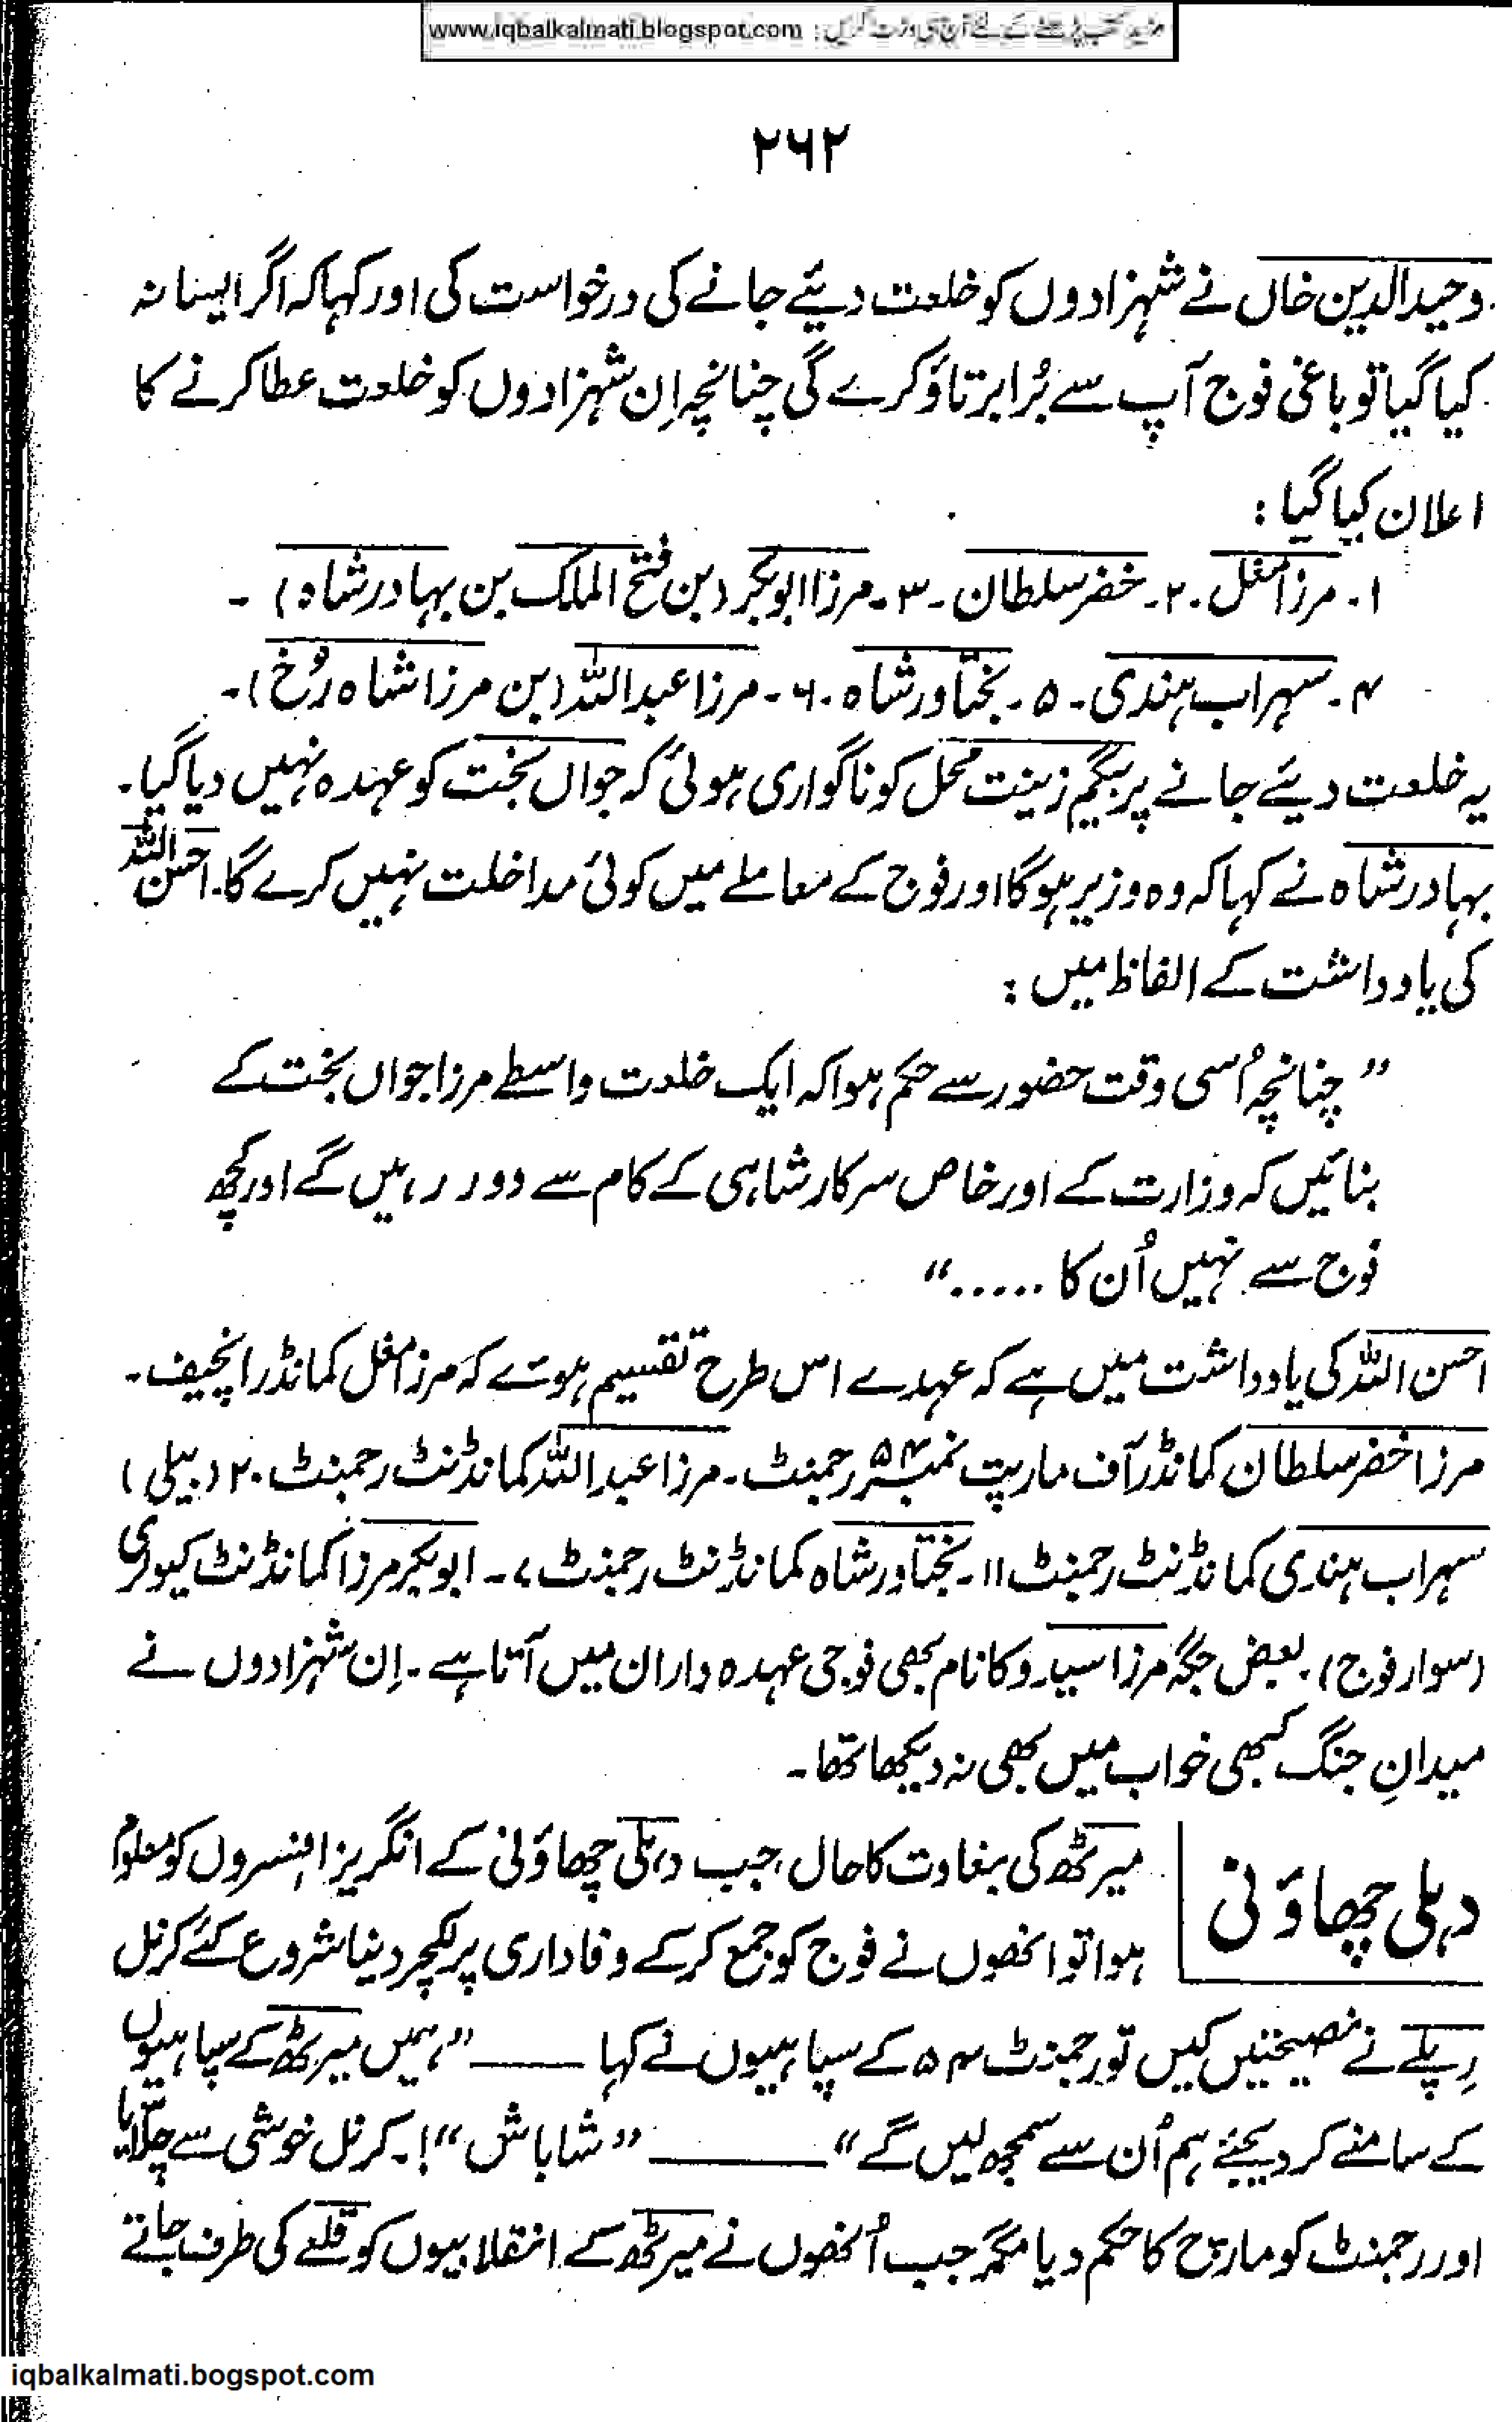 مزید کتب پڑھنے کے لئے آج ہی وزٹ کریں : www.iqbalkalmati.blogspot.com
۲۶۲
وحید الدین خاں نے شہزادوں کو خلعت دیئے جانے کی درخواست کی اور کہا کہ اگر ایسا نہ
کیا گیا تو باغی فوج آپ سے بُرا برتاؤ کرے گی چنانچہ اِن شہزادوں کو خلعت عطا کرنے کا
اعلان کیا گیا :
۱۔ مرزا مغل ۔ ۲۔ خضر سلطان ۔ ۳۔ مرزا ابو بکر (بن فتح الملک بن بہادر شاہ) ۔
۴۔ سہراب ہندی ۔ ۵۔ بختاور شاہ ۔ ۶۔ مرزا عبد اللہ (بن مرزا شاہ رُخ) ۔
یہ خلعت دیئے جانے پر بیگم زینت محل کو ناگواری ہوئی کہ جواں بخت کو عہدہ نہیں دیا گیا۔
بہادر شاہ نے کہا کہ وہ وزیر ہوگا اور فوج کے معاملے میں کوئی مداخلت نہیں کرے گا۔ احسن اللہ
کی یادداشت کے الفاظ میں :
” چنانچہ اُسی وقت حضور سے حکم ہوا کہ ایک خلعت واسطے مرزا جواں بخت کے
بنائیں کہ وزارت کے اور خاص سرکار شاہی کے کام سے دور رہیں گے اور کچھ
فوج سے نہیں اُن کا ..... “
احسن اللہ کی یادداشت میں ہے کہ عہدے اس طرح تقسیم ہوئے کہ مرزا مغل کمانڈر انچیف ۔
مرزا خضر سلطان کمانڈر آف مارپت نمبر ۵۴ رجمنٹ ۔ مرزا عبد اللہ کمانڈنٹ رجمنٹ ۲۰ (بیلی)
سہراب ہندی کمانڈنٹ رجمنٹ ۱۱ ۔ بختاور شاہ کمانڈنٹ رجمنٹ ۷ ۔ ابو بکر مرزا کمانڈنٹ کیولری
(سوار فوج) ۔ بعض جگہ مرزا سیدو کا نام بھی فوجی عہدہ داران میں آتا ہے ۔ اِن شہزادوں نے
میدانِ جنگ کبھی خواب میں بھی نہ دیکھا تھا ۔
دہلی چھاؤنی
میرٹھ کی بغاوت کا حال ، جب دہلی چھاؤنی کے انگریز افسروں کو معلوم
ہوا تو انھوں نے فوج کو جمع کر کے وفاداری پر لکچر دینا شروع کئے کرنل
رِپلے نے نصیحتیں کیں تو رجمنٹ ۵۴ کے سپاہیوں نے کہا —— ”ہمیں میرٹھ کے سپاہیوں
کے سامنے کر دیجئے ہم اُن سے سمجھ لیں گے“ —— ”شاباش“! ۔ کرنل خوشی سے چلّایا
اور رجمنٹ کو مارچ کا حکم دیا مگر جب اُنھوں نے میرٹھ کے انقلابیوں کو قلعے کی طرف جاتے
iqbalkalmati.bogspot.com